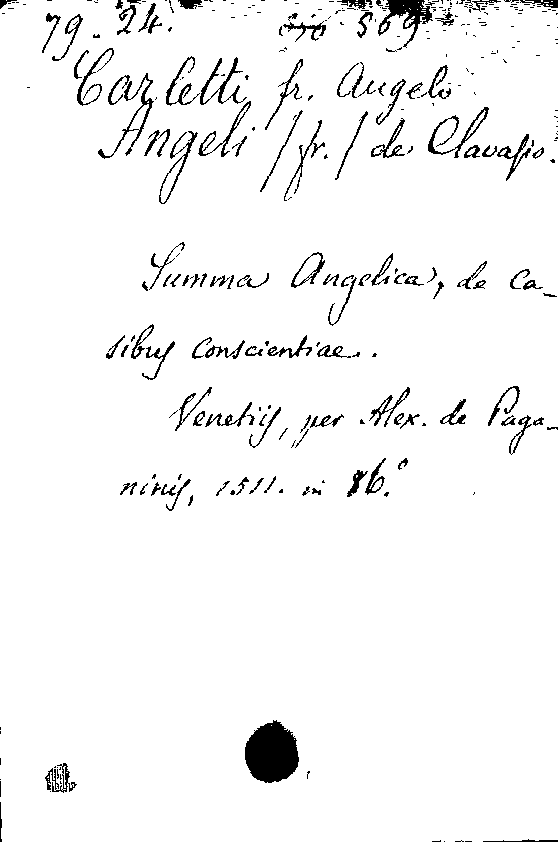 79. 24. 569
Carletti fr. Angelo
Angeli / fr. / de Clavasio.
Summa Angelica, de ca-
sibus conscientiae.
Venetiis, per Alex. de Paga-
ninis, 1511. in 16.°